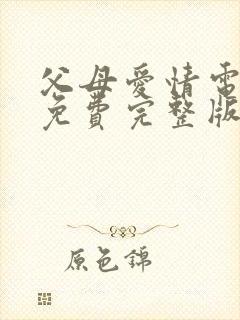 父母愛情電
免費完整版
原色錦